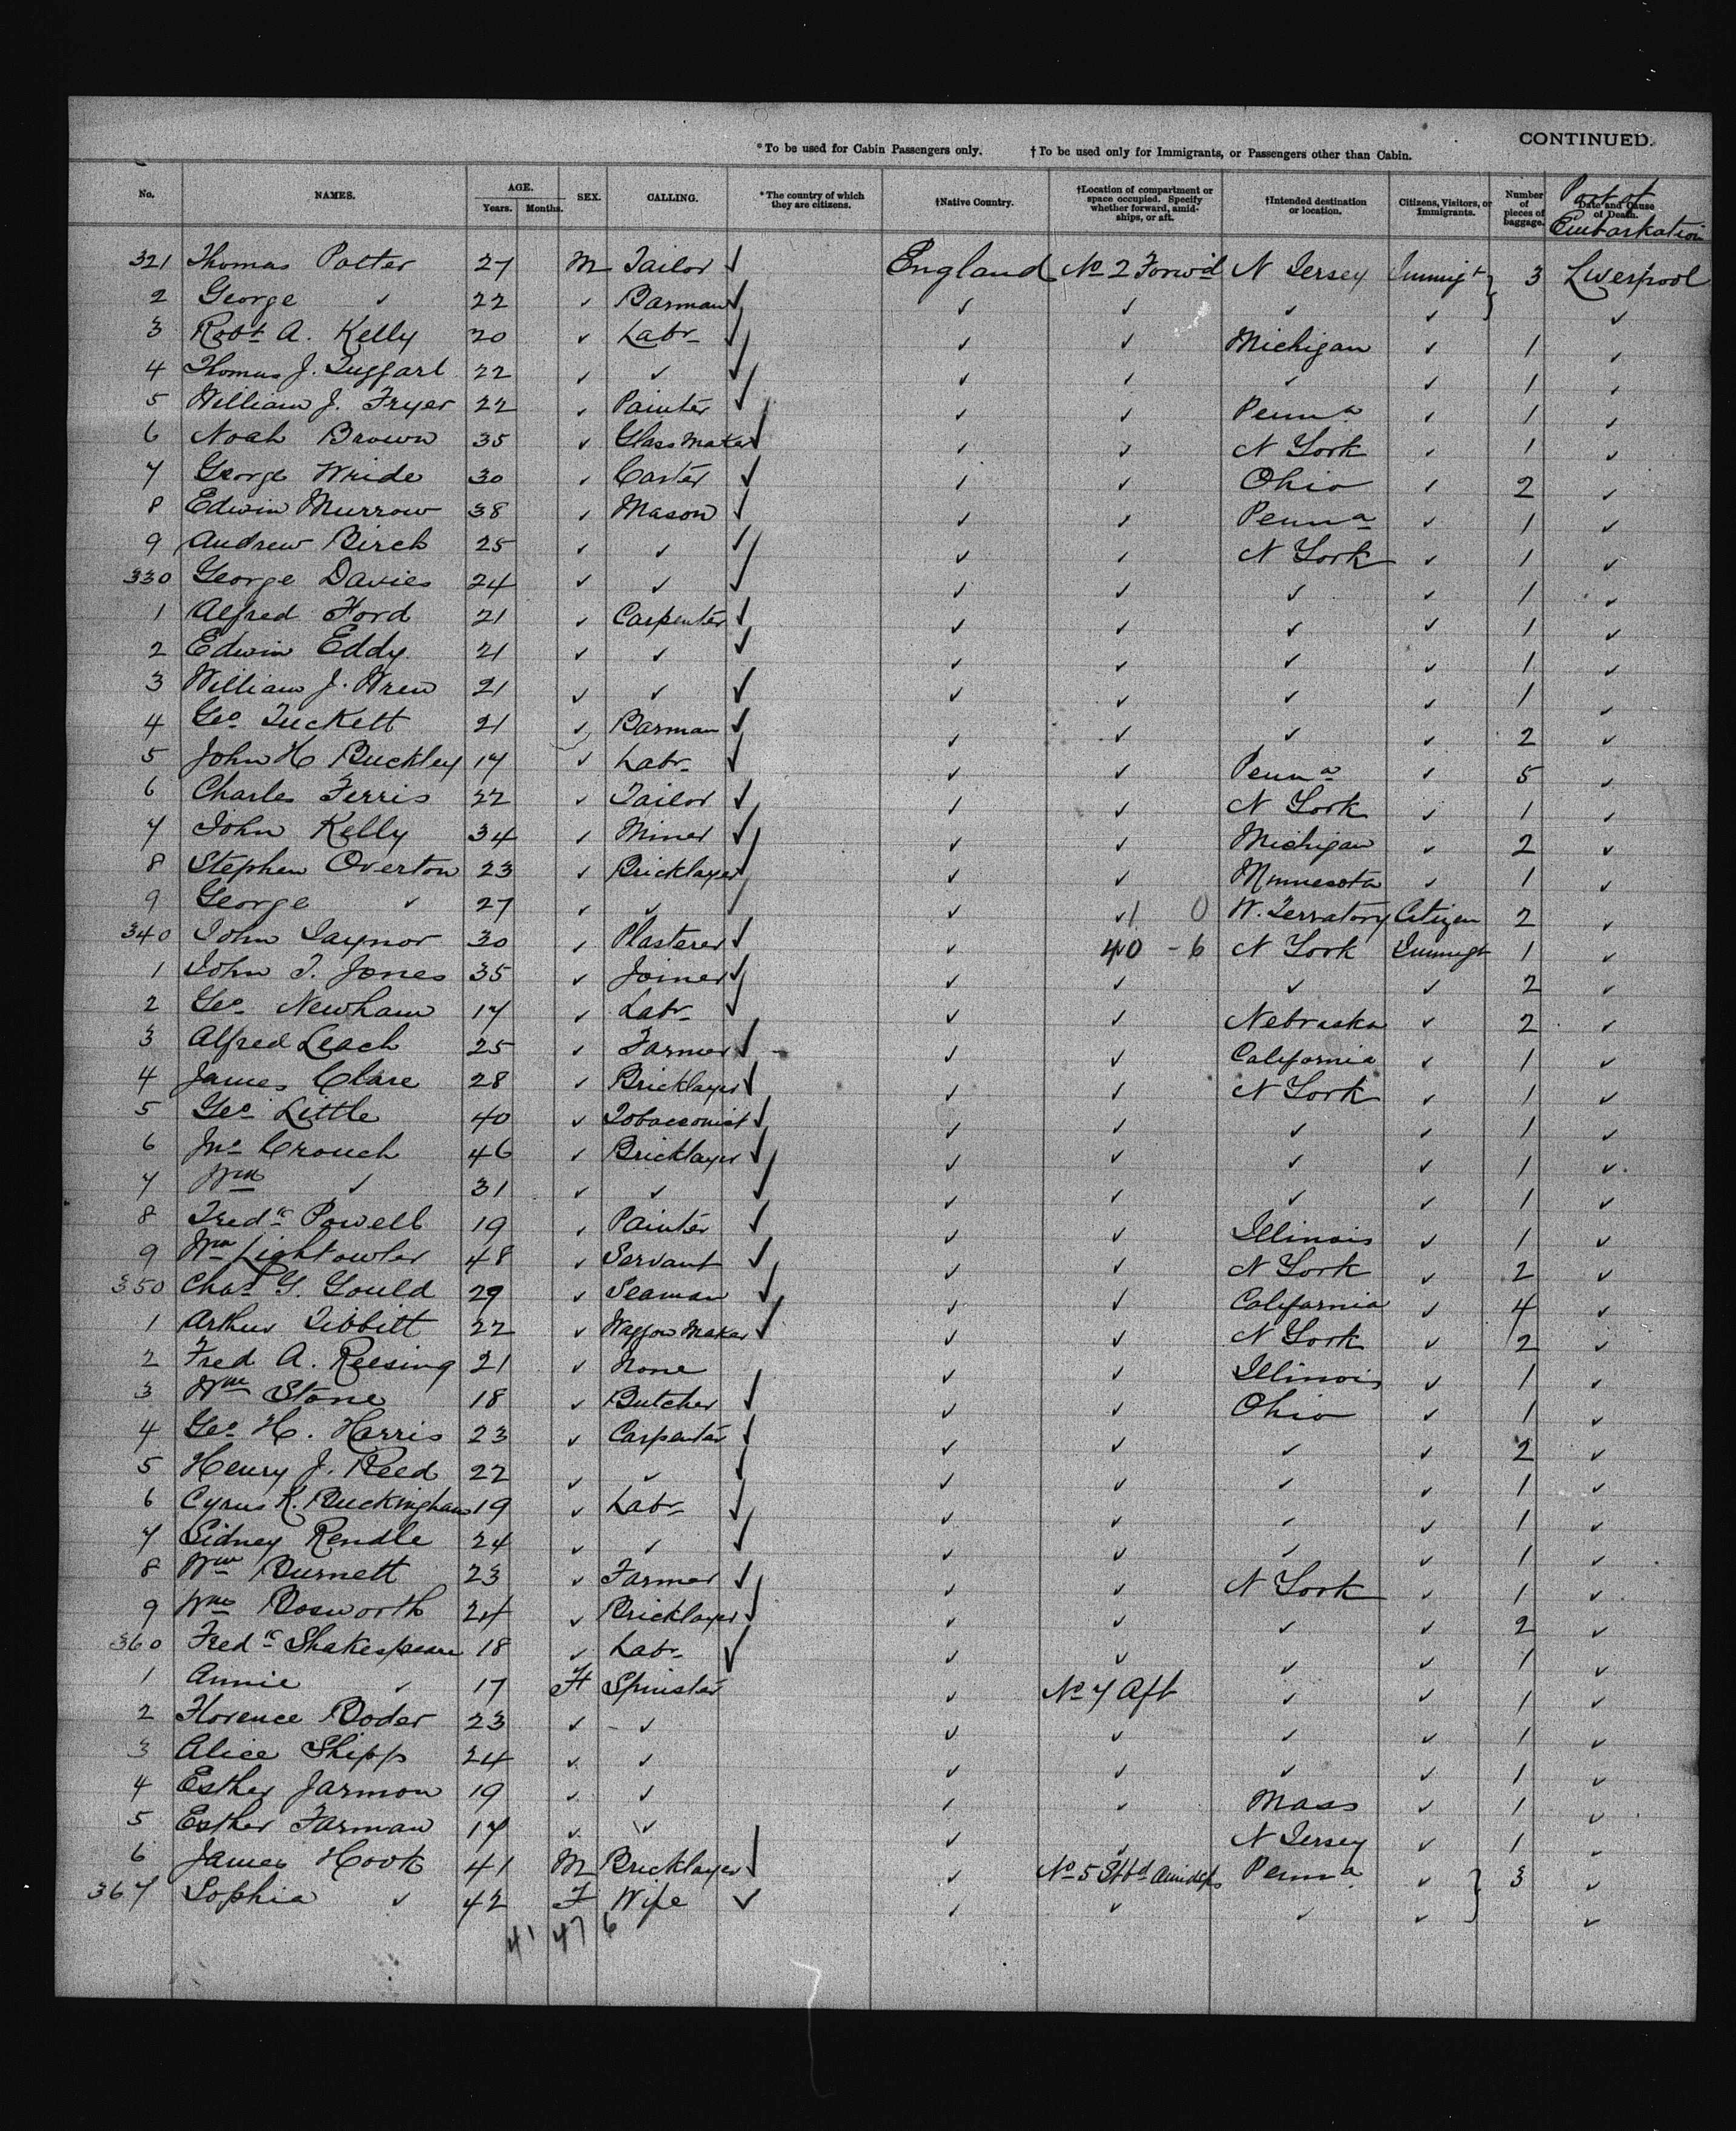 CONTINUED.
*To be used for Cabin Passengers only. †To be used only for Immigrants, or Passengers other than Cabin.
No. NAMES. AGE. Years. Months. SEX. CALLING. *The country of which they are citizens. †Native Country. †Location of compartment or space occupied. Specify whether forward, amidships, or aft. †Intended destination or location. Citizens, Visitors, or Immigrants. Number of pieces of baggage. Date and Cause of Death. Port of Embarkation
321 Thomas Potter 27 M Tailor ✓ England No 2 Forw'd N Jersey Immigt } 3 Liverpool
2 George ✓ 22 ✓ Barman ✓ ✓ ✓ ✓ ✓ ✓
3 Robt A. Kelly 20 ✓ Labr ✓ ✓ ✓ Michigan ✓ 1 ✓
4 Thomas J. Tuggart 22 ✓ ✓ ✓ ✓ ✓ ✓ ✓ 1 ✓
5 William J. Fryer 22 ✓ Painter ✓ ✓ ✓ Penna ✓ 1 ✓
6 Noah Brown 35 ✓ Glass Maker ✓ ✓ ✓ N York ✓ 1 ✓
7 George Wride 30 ✓ Carter ✓ ✓ ✓ Ohio ✓ 2 ✓
8 Edwin Murrow 38 ✓ Mason ✓ ✓ ✓ Penna ✓ 1 ✓
9 Andrew Birch 25 ✓ ✓ ✓ ✓ ✓ N York ✓ 1 ✓
330 George Davies 24 ✓ ✓ ✓ ✓ ✓ ✓ ✓ 1 ✓
1 Alfred Ford 21 ✓ Carpenter ✓ ✓ ✓ ✓ ✓ 1 ✓
2 Edwin Eddy 21 ✓ ✓ ✓ ✓ ✓ ✓ ✓ 1 ✓
3 William J. Wren 21 ✓ ✓ ✓ ✓ ✓ ✓ ✓ 1 ✓
4 Geo Tuckett 21 ✓ Barman ✓ ✓ ✓ ✓ ✓ 2 ✓
5 John H Buckley 17 ✓ Labr ✓ ✓ ✓ Penna ✓ 5 ✓
6 Charles Ferris 22 ✓ Tailor ✓ ✓ ✓ N York ✓ 1 ✓
7 John Kelly 34 ✓ Miner ✓ ✓ ✓ Michigan ✓ 2 ✓
8 Stephen Overton 23 ✓ Bricklayer ✓ ✓ ✓ Minnesota ✓ 1 ✓
9 George ✓ 27 ✓ ✓ ✓ ✓ ✓1 0 W. Terratory Citizen 2 ✓
340 John Taynor 30 ✓ Plasterer ✓ ✓ 40 - 6 N York Immigt 1 ✓
1 John T. Jones 35 ✓ Joiner ✓ ✓ ✓ ✓ ✓ 2 ✓
2 Geo Newham 17 ✓ Labr ✓ ✓ ✓ Nebraska ✓ 2 ✓
3 Alfred Leach 25 ✓ Farmer ✓ ✓ ✓ California ✓ 1 ✓
4 James Clare 28 ✓ Bricklayer ✓ ✓ ✓ N York ✓ 1 ✓
5 Geo Little 40 ✓ Tobacconist ✓ ✓ ✓ ✓ ✓ 1 ✓
6 Jno Crouch 46 ✓ Bricklayer ✓ ✓ ✓ ✓ ✓ 1 ✓
7 Wm ✓ 31 ✓ ✓ ✓ ✓ ✓ ✓ ✓ 1 ✓
8 Fredk Powell 19 ✓ Painter ✓ ✓ ✓ Illinois ✓ 1 ✓
9 Wm Lightowler 48 ✓ Servant ✓ ✓ ✓ N York ✓ 2 ✓
350 Chas G. Gould 29 ✓ Seaman ✓ ✓ ✓ California ✓ 4 ✓
1 Arthur Tibbitt 22 ✓ Waggon Maker ✓ ✓ ✓ N York ✓ 2 ✓
2 Fred A. Reesing 21 ✓ None ✓ ✓ Illinois ✓ 1 ✓
3 Wm Stone 18 ✓ Butcher ✓ ✓ ✓ Ohio ✓ 1 ✓
4 Geo H. Harris 23 ✓ Carpenter ✓ ✓ ✓ ✓ ✓ 2 ✓
5 Henry J. Reed 22 ✓ ✓ ✓ ✓ ✓ ✓ ✓ 1 ✓
6 Cyrus K. Buckingham 19 ✓ Labr ✓ ✓ ✓ ✓ ✓ 1 ✓
7 Sidney Rendle 24 ✓ ✓ ✓ ✓ ✓ ✓ ✓ 1 ✓
8 Wm Burnett 23 ✓ Farmer ✓ ✓ ✓ N York ✓ 1 ✓
9 Wm Bosworth 24 ✓ Bricklayer ✓ ✓ ✓ ✓ ✓ 2 ✓
360 Fredk Shakespeare 18 ✓ Labr ✓ ✓ ✓ ✓ ✓ 1 ✓
1 Annie ✓ 17 F Spinster ✓ No 7 Aft ✓ ✓ 1 ✓
2 Florence Boder 23 ✓ ✓ ✓ ✓ ✓ ✓ 1 ✓
3 Alice Shipp 24 ✓ ✓ ✓ ✓ ✓ ✓ 1 ✓
4 Esther Jarmon 19 ✓ ✓ ✓ ✓ Mass ✓ 1 ✓
5 Esther Farman 17 ✓ ✓ ✓ ✓ N Jersey ✓ 1 ✓
6 James Hook 41 M Bricklayer ✓ ✓ No 5 Stbd Amidsps Penna ✓ } 3 ✓
367 Sophia ✓ 42 F Wife ✓ ✓ ✓ ✓ ✓ ✓
41 47 6